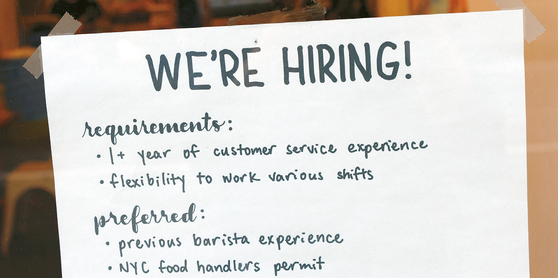 WE'RE HIRING!
requirements:
• 1+ year of customer service experience
• flexibility to work various shifts
preferred:
• previous barista experience
• NYC food handlers permit